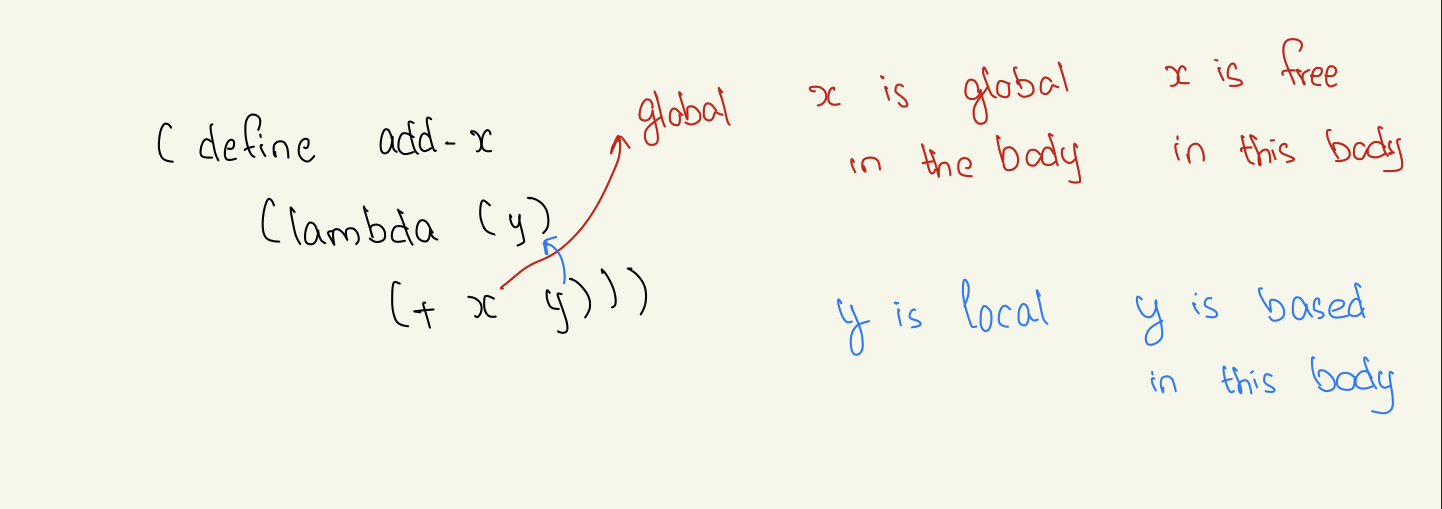 ( define add-x
(lambda (y)
(+ x y)))
global
x is global
in the body
x is free
in this body
y is local
y is based
in this body